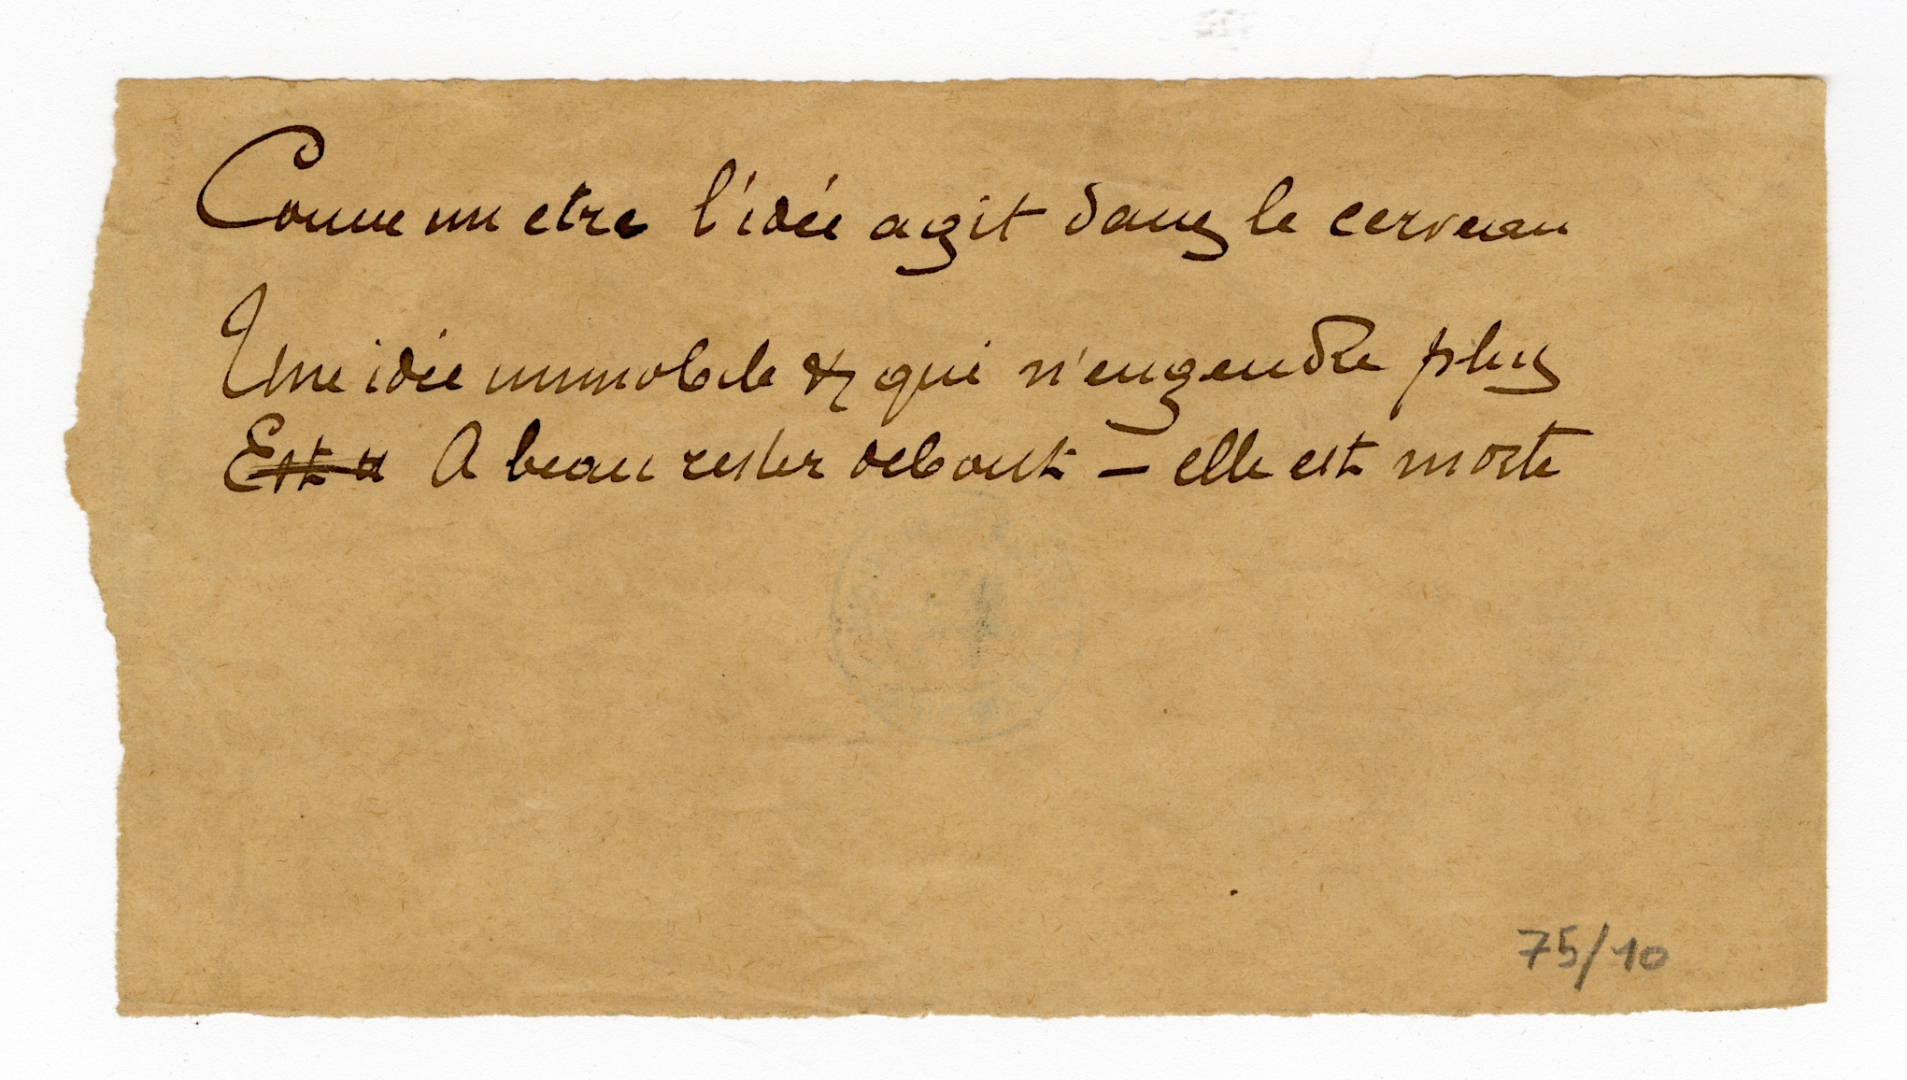 Comme un etre l'idée agit dans le cerveau
Une idée immobile & qui n'engendre plus
Est u A beau rester debout – elle est morte
75/10